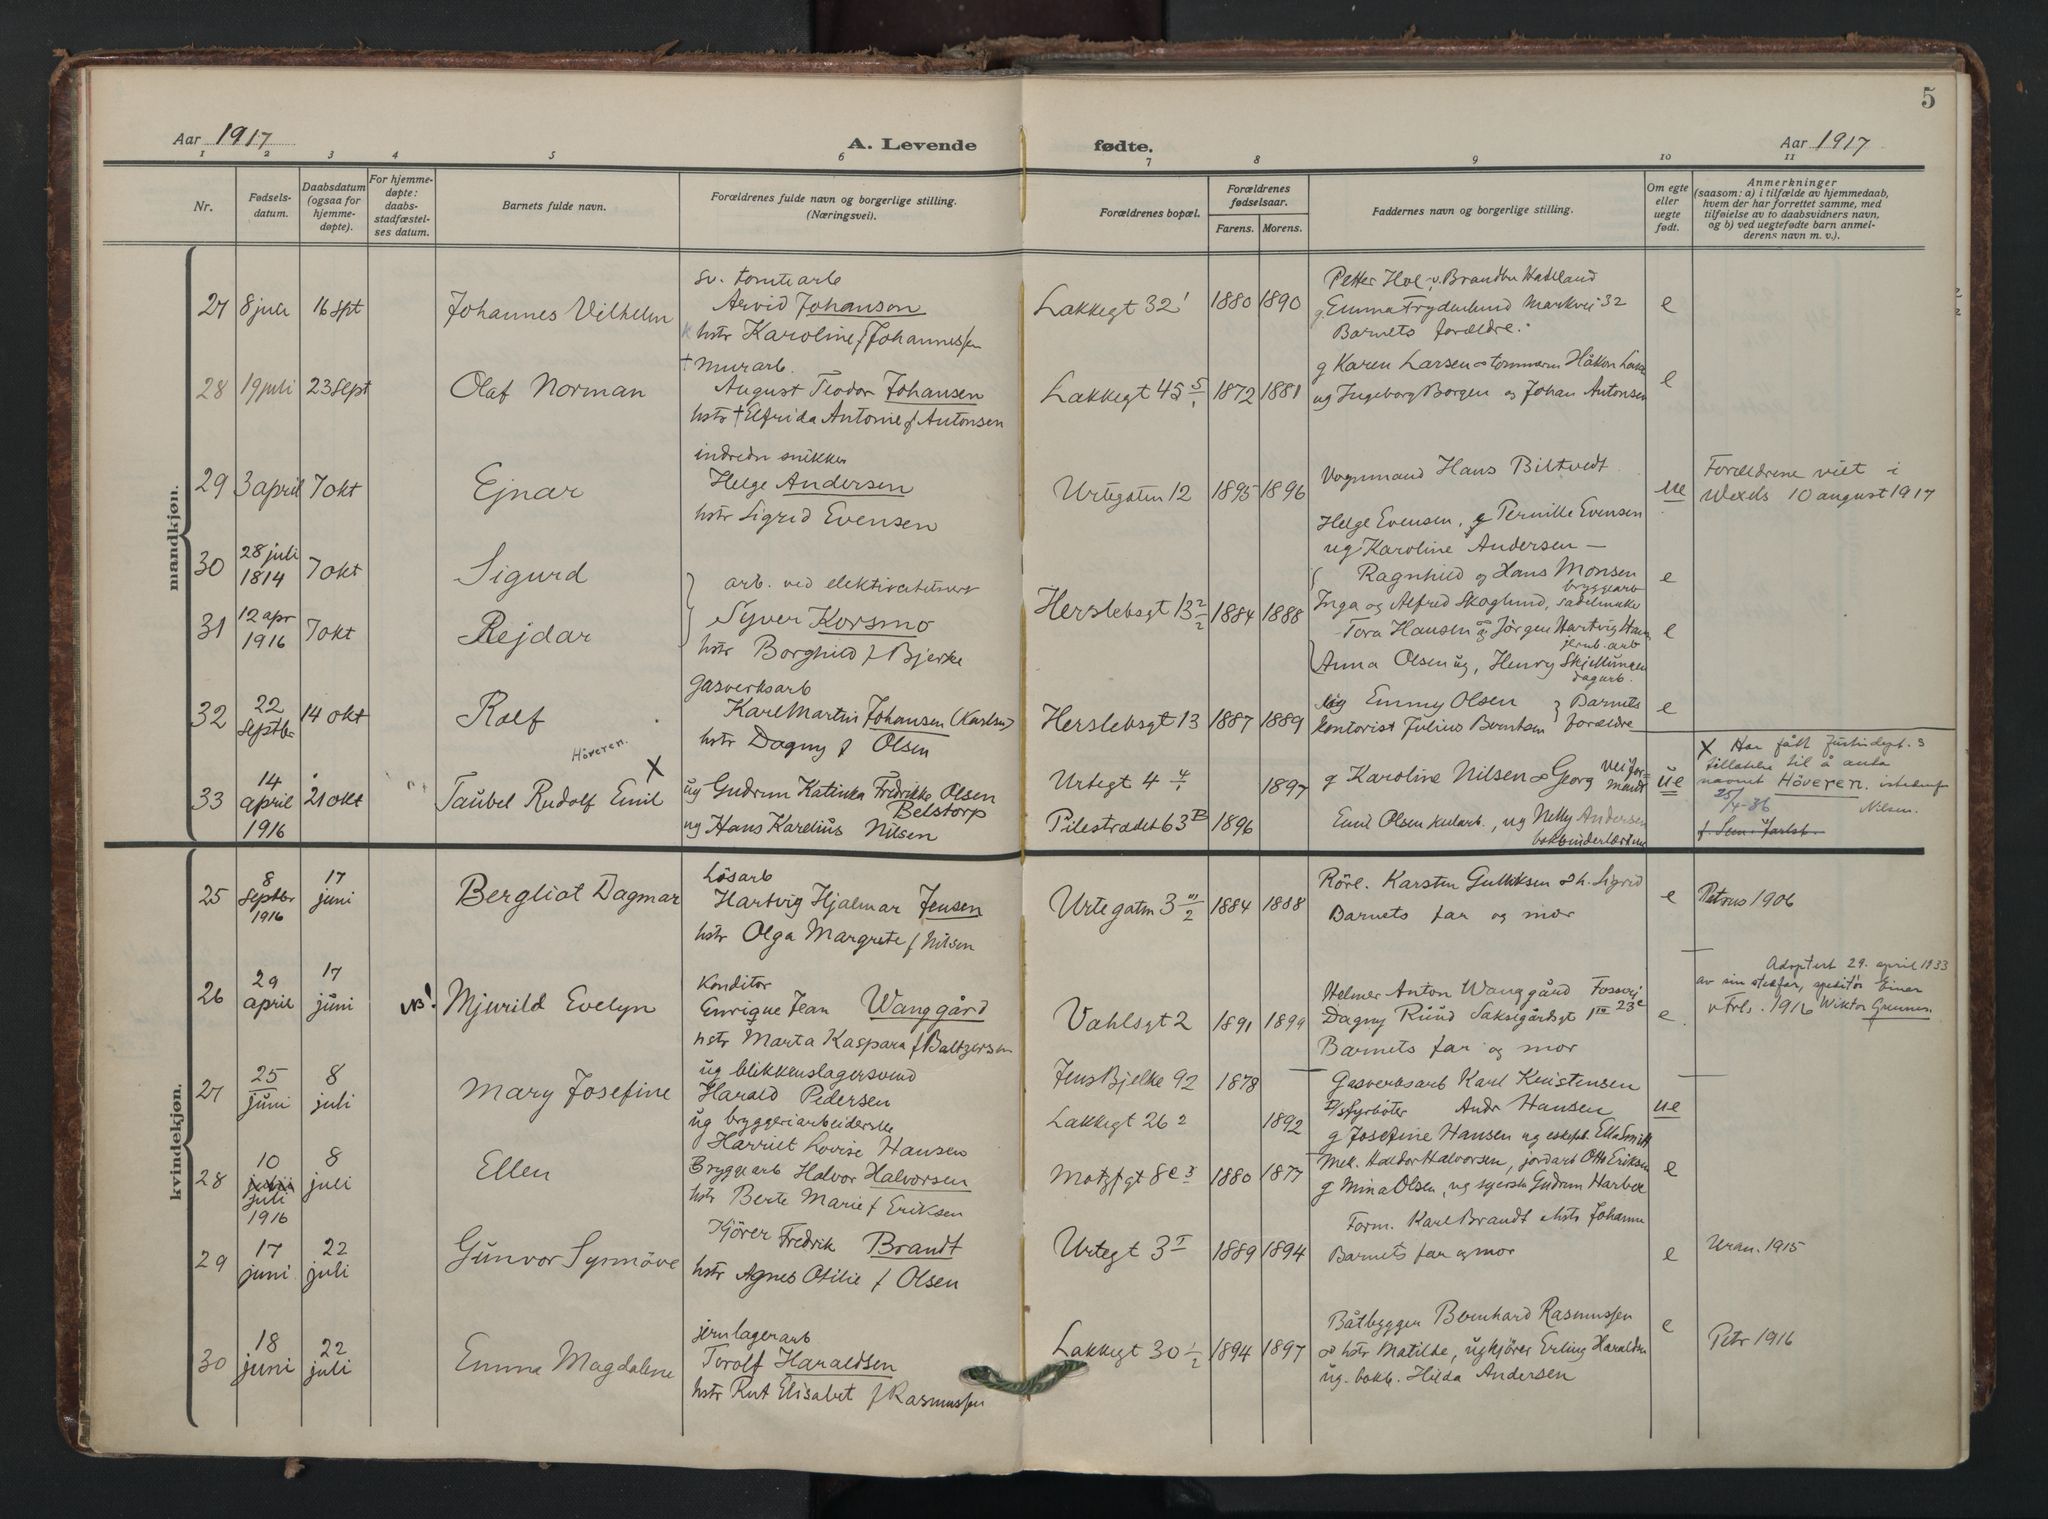 5
Aar 1917
A. Levende fødte.
Aar 1917
1 2 3 4 5 6 7 8 9 10 11
Nr.
Fødsels-
datum.
Daabsdatum
(ogsaa for
hjemme-
døpte).
For hjemme-
døpte:
daabs-
stadfæstel-
ses datum.
Barnets fulde navn.
Forældrenes fulde navn og borgerlige stilling.
(Næringsvei).
Forældrenes bopæl.
Forældrenes
fødselsaar.
Farens. Morens.
Faddernes navn og borgerlige stilling.
Om egte
eller
uegte
født.
Anmerkninger
(saasom: a) i tilfælde av hjemmedaab,
hvem der har forrettet samme, med
tilføielse av to daabsvidners navn,
og b) ved uegtefødte barn anmel-
derens navn m. v.).
mandkjøn.
27 8 juli 16 spt Johannes Vilhelm
sv. tomtearb
Arvid Johanson
hstr Karoline f Johannessen
Lakkegt 32 1880 1890
Petter Hol
Emma Frydenlund Markvei 32
Barnets forældre.
e
28 19 juli 23 sept Olaf Norman
† murarb.
August Teodor Johansen
hstr † Elfrida Antonie f Antonsen
Lakkegt 45 1872 1881
g Karen Larsen tommerm Håkon
ug Ingeborg Borgen og Johan Antonsen
e
29 3 april 7 okt Ejnar
indredn snikker
Helge Andersen
hstr Sigrid Evensen
Urtegaten 12 1895 1896
Vognmand Hans Biltvedt
Helge Evensen, g Pernille Evensen
ug Karoline Andersen —
ue
Forældrene viet i
Wexels 10 august 1917
30 28 juli 1814 7 okt Sigurd
31 12 apr 1916 7 okt Rejdar
arb. ved
Syver Korsmo
hstr Borghild f Bjerke
Herslebsgt 13 2/2 1884 1888
Ragnhild og Hans Monsen
bryggearb
Inga og Alfred Skoglund, sadelmaker
Tora Hansen og Jörgen Hartvig
jernb. arb
Anna Olsen ug, Henry
dagarb.
e
e
32 22 septbr 14 okt Rolf
gasverksarb
Karl Martin Johansen (Karlsen)
hstr Dagny f Olsen
Herslebsgt 13 1887 1889
Emmy Olsen
kontorist Julius Berntsen } Barnets
forældre
e
Höveren.
33 14 april 1916 21 okt Taubel Rudolf Emil X
ug Gudrun Katinka Fredrikke Olsen
Belstorp
ug Hans Karelius Nilsen
Urtegt 4 1897
Pilestrædet 63 B 1896
g Karoline Nilsen Georg
Emil Olsen kularb., ug Nelly Andersen
ue
X Har fått Justisdept. s
tillatelse til å anta
navnet Höveren. istedenf
25/4-36 Nilsen.
kvindekjøn.
25 8 septbr 1916 17 juni Bergliot Dagmar
Lösarb
Hartvig Hjalmar Jensen
hstr Olga Margrete f Nilsen
Urtegaten 3 III/2 1884 1888
Rörl. Karsten Gulliksen h. Sigrid
Barnets far og mor
e
Petrus 1906
26 29 april 17 juni NB! Mjurild Evelyn
Konditor
Enrique Jean Wanggård
hstr Marta Kaspara f Baltzersen
Vahlsgt 2 1891 1899
Helmer Anton Wanggård Fossvei
Dagny Ruud Saksegårdsgt 23 c
Barnets far og mor
e
Adoptert 29. april 1933
av sin stefar, speditör Einar
v Frls. 1916 Wiktor Grennes.
27 25 juni 8 juli Mary Josefine
ug blikkenslagersvend
Harald Pedersen
ug bryggeriarbeiderske
Harriet Lovise Hansen
Jens Bjelke 92 1878
Lakkegt 26 2 1892
Gasverksarb Karl Kristensen
fyrböter Andr Hansen
g Josefine Hansen ug eskefab. Ella Smith
ue
28 10 juli 1916 8 juli Ellen
Bryggearb Halvor Halvorsen
hstr Berte Marie f Eriksen
Motzfgt 8 c 3 1880 1877
Mek. Haldor Halvorsen, jordarb Otto Eriksen
g Mina Olsen, ug syerske Gudrun Harbek
e
29 17 juni 22 juli Gunvor Synnöve
Kjörer Fredrik Brandt
hstr Agnes Otilie f Olsen
Urtegt 3 I 1889 1894
Form. Karl Brandt hstr Johanne
Barnets far og mor
e
Uran. 1915
30 18 juni 22 juli Emma Magdalene
jernlagerarb
Torolf Haraldsen
hstr Rut Elisabet f Rasmussen
Lakkegt 30 1/2 1894 1897
Båtbygger Bernhard Rasmussen
hstr Matilde, ug kjörer Erling Haraldsen
ug. bokb. Hilda Andersen
e
Petr 1916